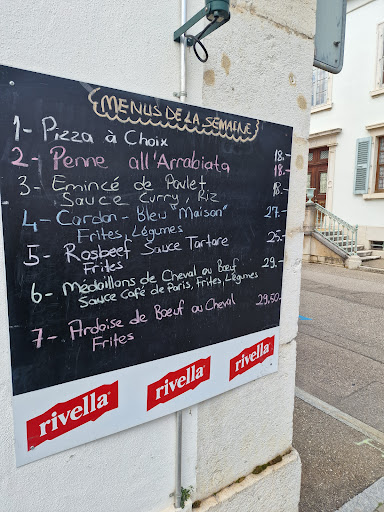 MENUS DE LA SEMAINE
1- Pizza à Choix 18.-
2- Penne all'Arrabiata 18.-
3- Emincé de Poulet 18.-
Sauce Curry, Riz
4- Cordon-Bleu "Maison" 27.-
Frites, Légumes
5- Rosbeef Sauce Tartare 25.-
Frites
6- Médaillons de Cheval ou Bœuf 29.-
Sauce Café de Paris, Frites, Légumes
7- Ardoise de Bœuf ou Cheval 29,50.-
Frites
rivella rivella rivella